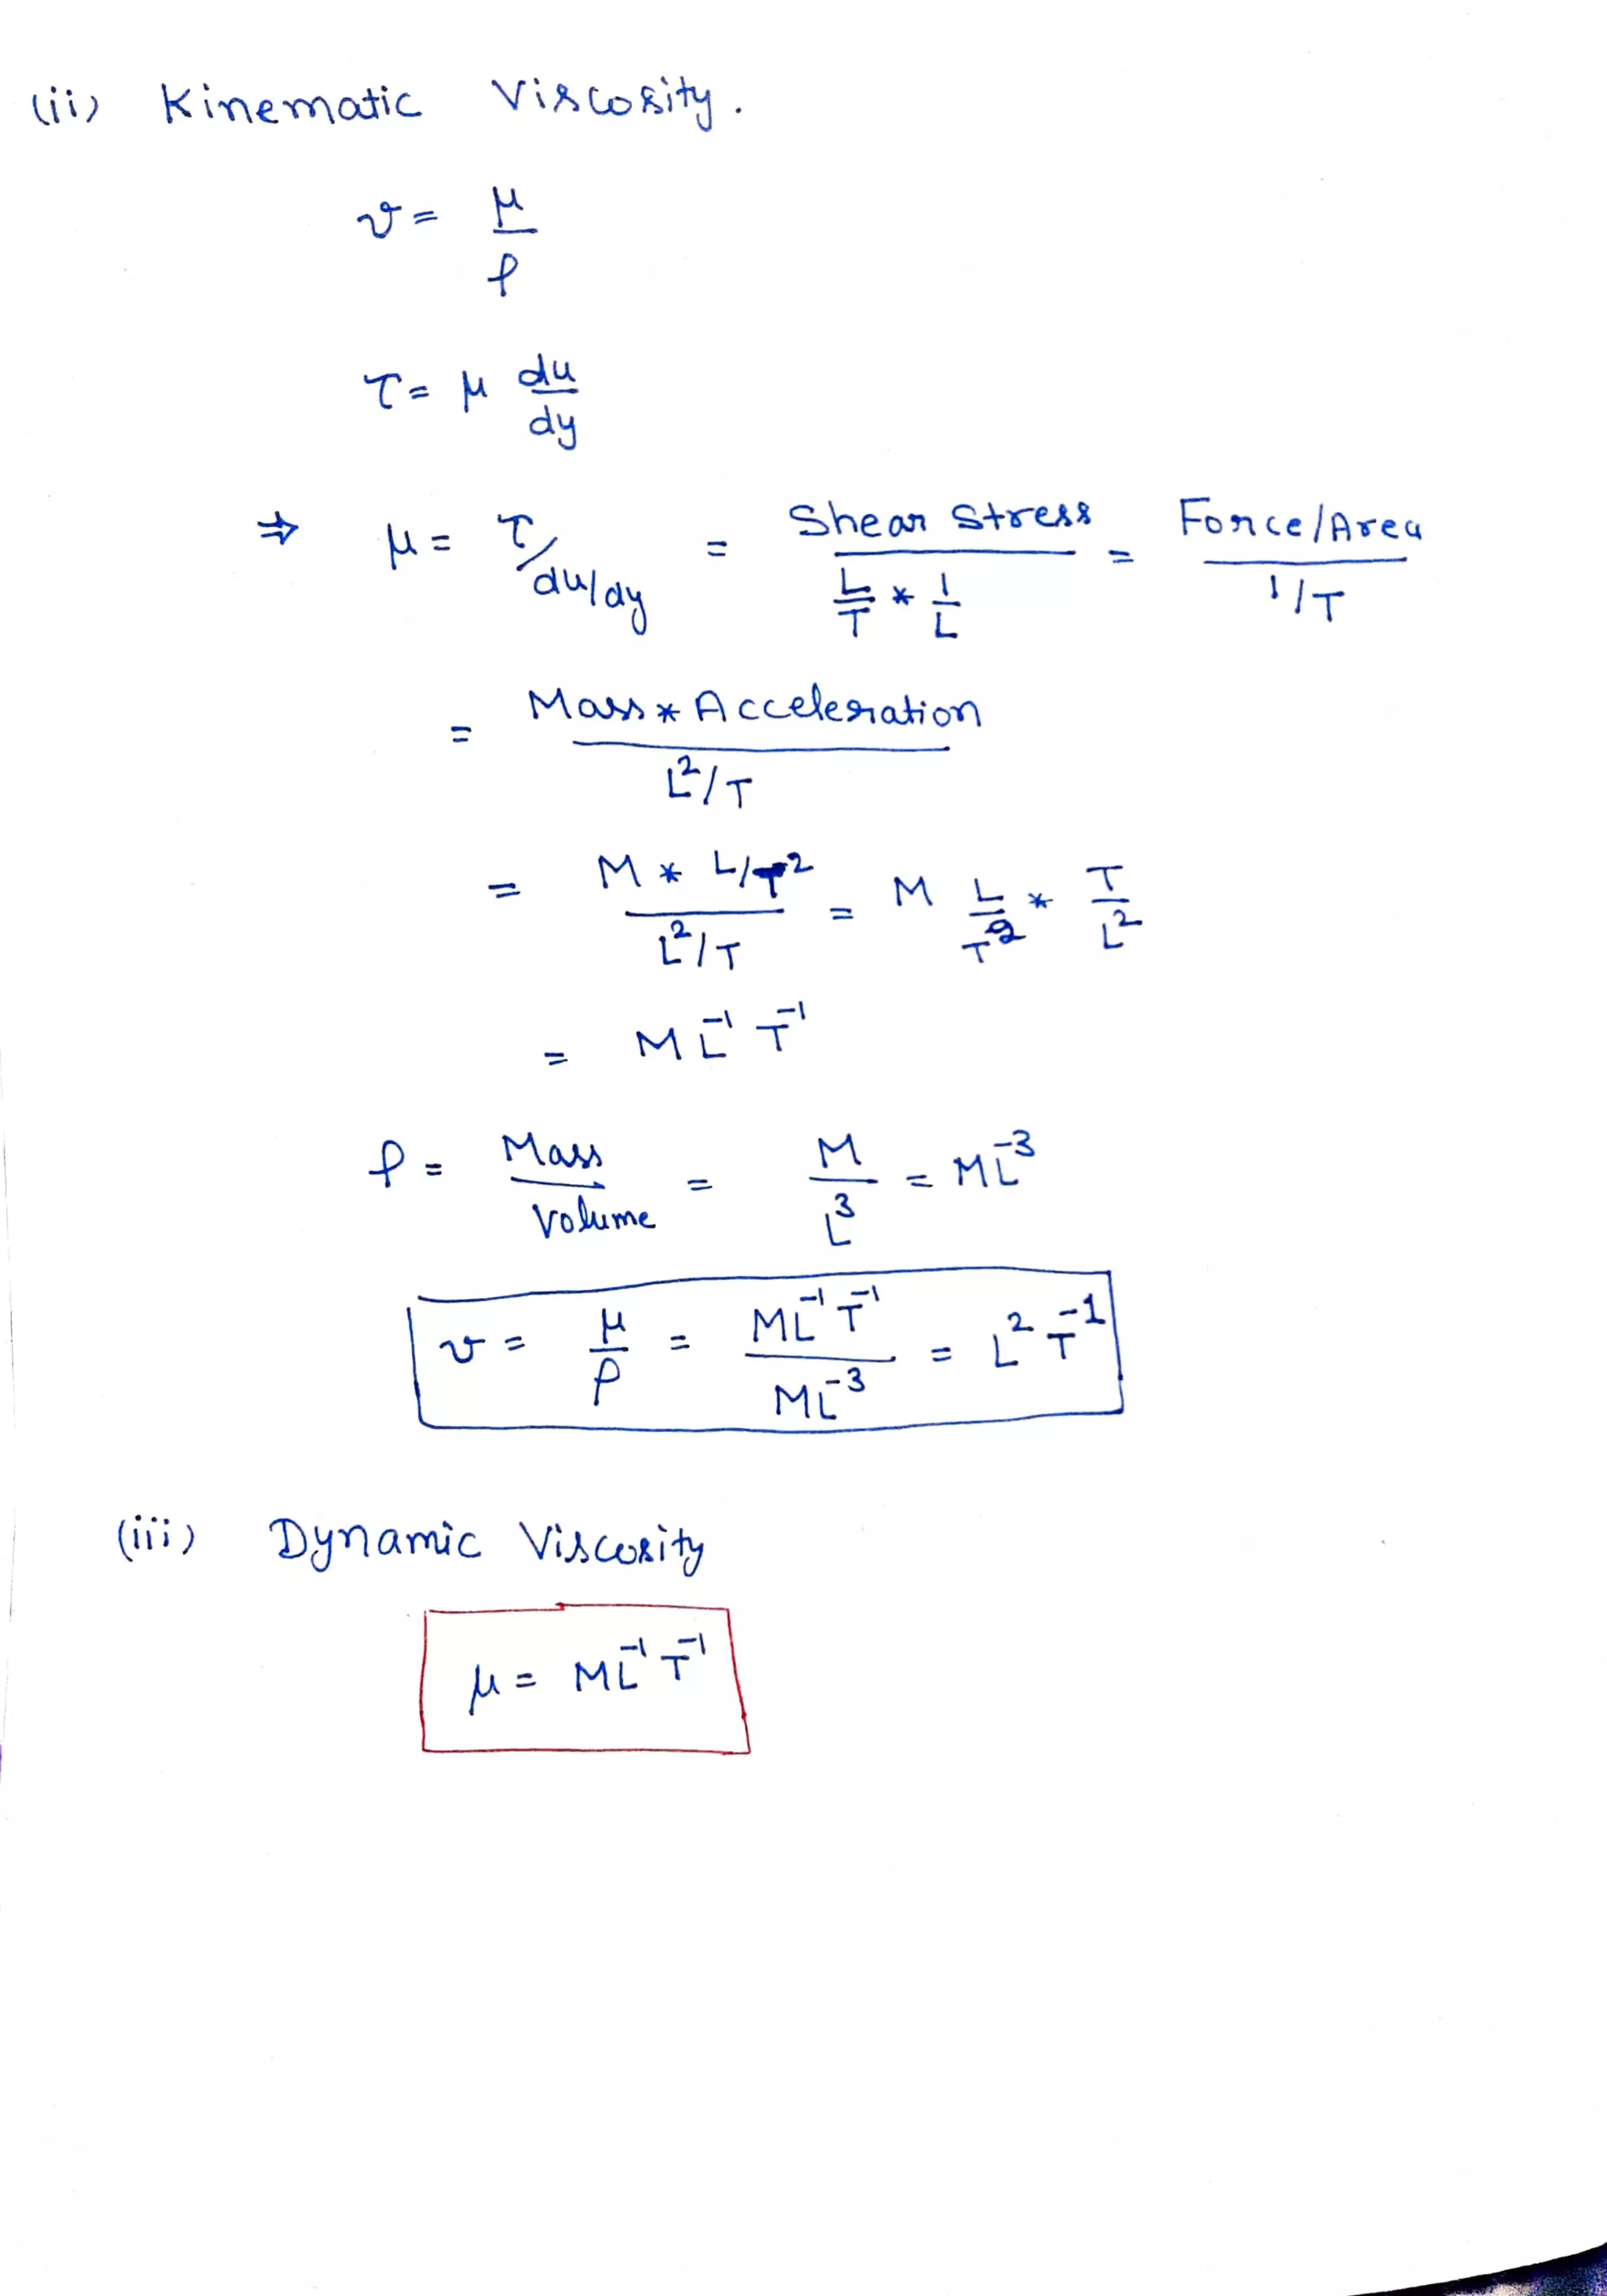 (ii) Kinematic Viscosity.
ν = μ/ρ
τ = μ du/dy
⇒ μ = τ/du/dy = Shear Stress / (L/T * 1/L) = Force/Area / 1/T
= Mass * Acceleration / L²/T
= M * L/T² / L²/T = M L/T² * T/L²
= M L⁻¹ T⁻¹
ρ = Mass/Volume = M/L³ = ML⁻³
ν = μ/ρ = ML⁻¹T⁻¹ / ML⁻³ = L² T⁻¹
(iii) Dynamic Viscosity
μ = ML⁻¹T⁻¹